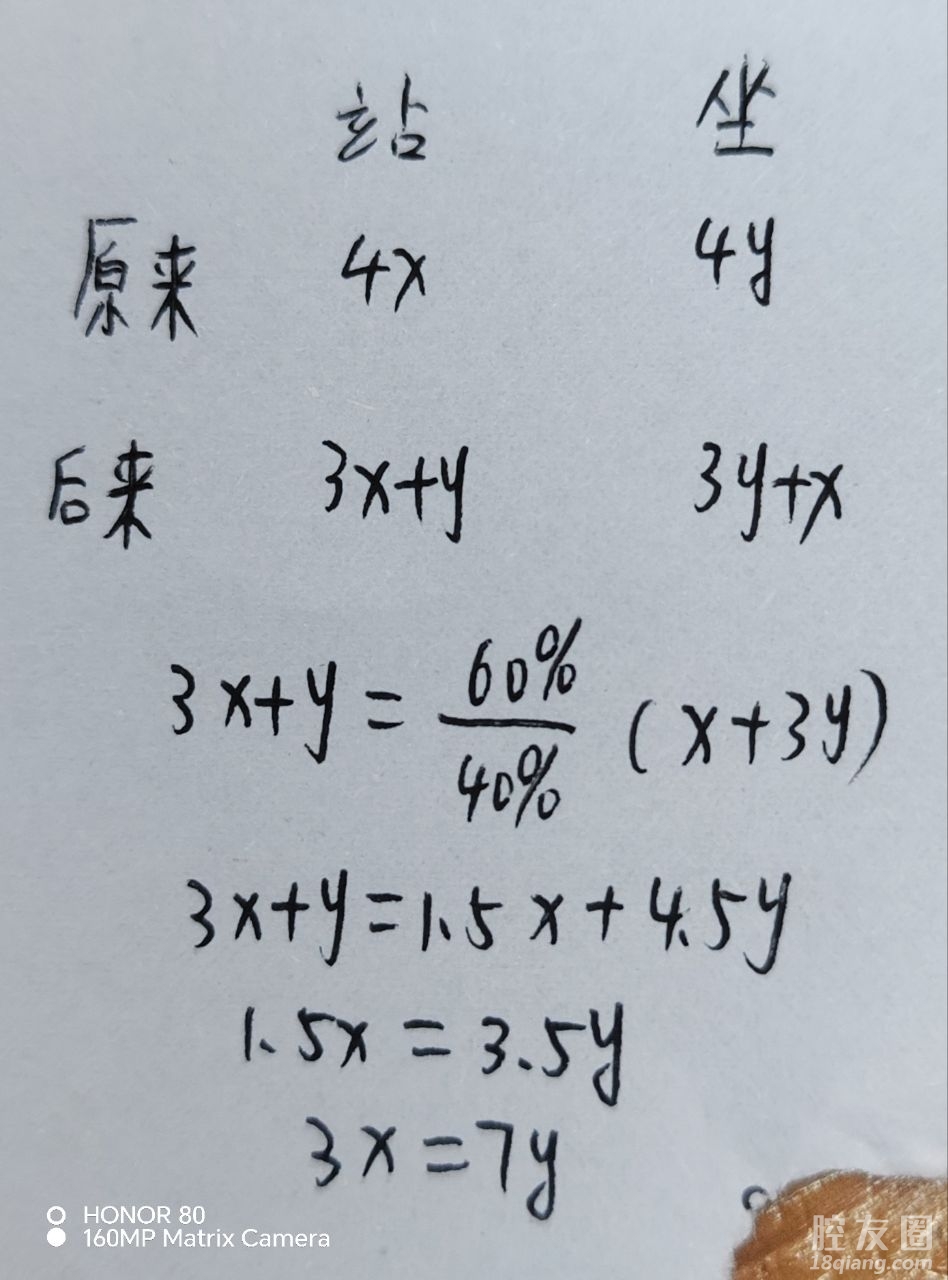 站 坐
原来 4x 4y
后来 3x+y 3y+x
3x+y = 60%/40% (x+3y)
3x+y=1.5x+4.5y
1.5x=3.5y
3x=7y
HONOR 80
160MP Matrix Camera
腔友圈
18qiang.com